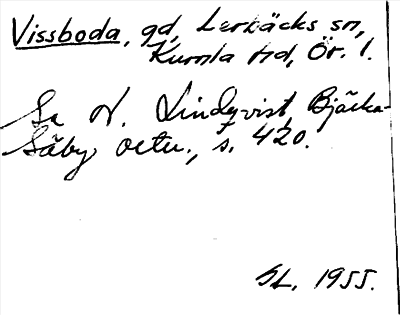 Vissboda, gd, Lerbäcks sn,
Kumla hd, Ör. l.
Se H. Lindqvist, Bjärka-
Säby octu., s. 420.
SL. 1955.